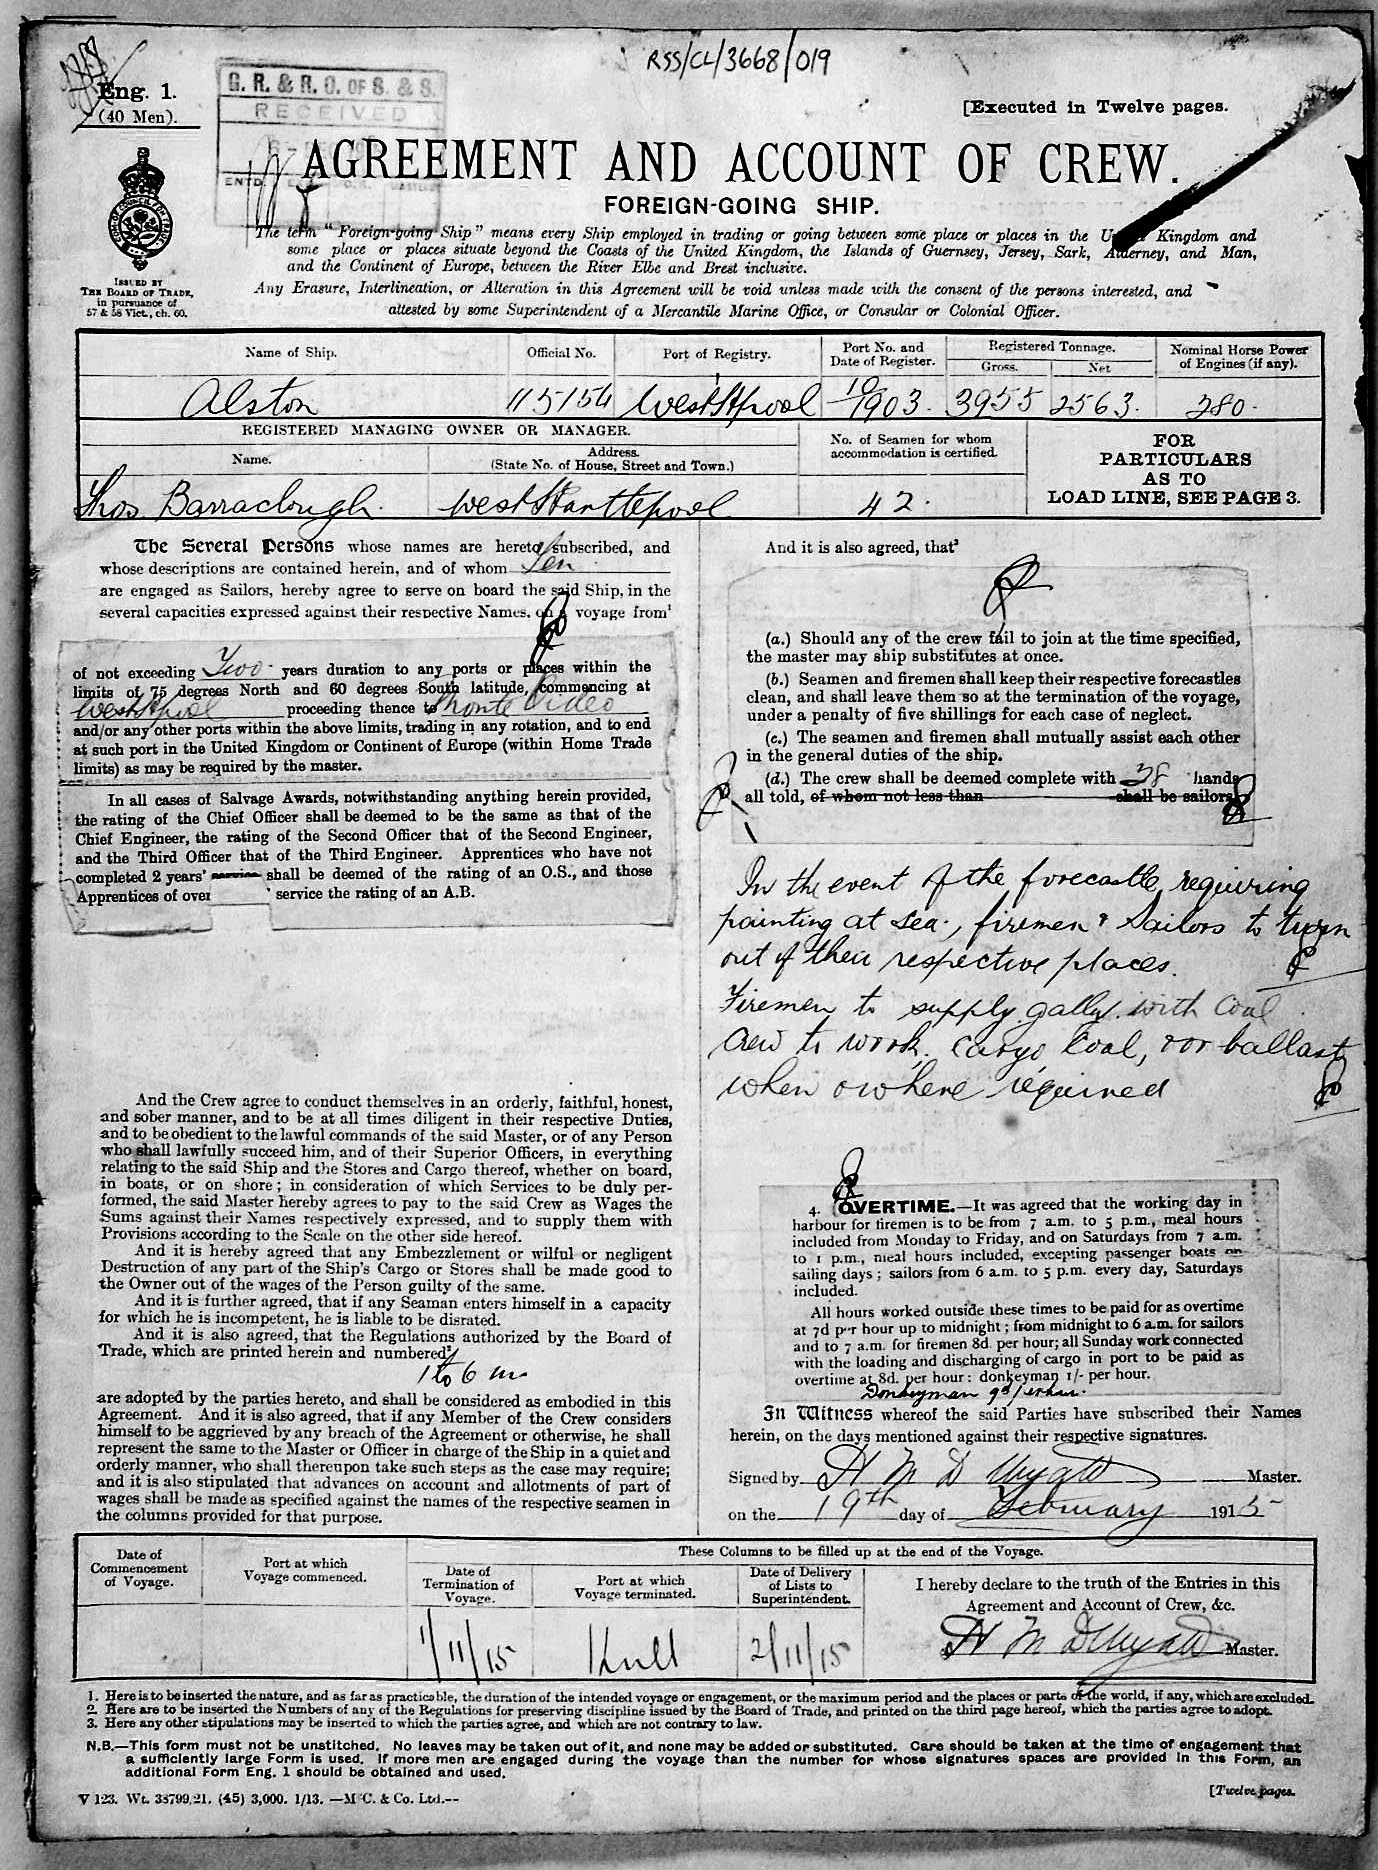 RSS/CL/3668/019
Eng. 1.
(40 Men).
G. R. & R. O. OF S. & S.
RECEIVED
[Executed in Twelve pages.
AGREEMENT AND ACCOUNT OF CREW.
FOREIGN-GOING SHIP.
ISSUED BY
THE BOARD OF TRADE,
in pursuance of
57 & 58 Vict., ch. 60.
The term "Foreign-going Ship" means every Ship employed in trading or going between some place or places in the Kingdom and
some place or places situate beyond the Coasts of the United Kingdom, the Islands of Guernsey, Jersey, Sark, Alderney, and Man,
and the Continent of Europe, between the River Elbe and Brest inclusive.
Any Erasure, Interlineation, or Alteration in this Agreement will be void unless made with the consent of the persons interested, and
attested by some Superintendent of a Mercantile Marine Office, or Consular or Colonial Officer.
Name of Ship. Official No. Port of Registry. Port No. and Date of Register. Registered Tonnage. Gross. Net Nominal Horse Power of Engines (if any).
Alston 115154 West Hpool 10/1903. 3955 2563. 280.
REGISTERED MANAGING OWNER OR MANAGER.
Name. Address. (State No. of House, Street and Town.) No. of Seamen for whom accommodation is certified.
Thos. Barraclough. West Hartlepool 42.
FOR
PARTICULARS
AS TO
LOAD LINE, SEE PAGE 3.
The Several Persons whose names are hereto subscribed, and
whose descriptions are contained herein, and of whom Ten
are engaged as Sailors, hereby agree to serve on board the said Ship, in the
several capacities expressed against their respective Names, on a voyage from¹
of not exceeding Two years duration to any ports or places within the
limits of 75 degrees North and 60 degrees South latitude, commencing at
West Hpool proceeding thence to Monte Video
and/or any other ports within the above limits, trading in any rotation, and to end
at such port in the United Kingdom or Continent of Europe (within Home Trade
limits) as may be required by the master.
In all cases of Salvage Awards, notwithstanding anything herein provided,
the rating of the Chief Officer shall be deemed to be the same as that of the
Chief Engineer, the rating of the Second Officer that of the Second Engineer,
and the Third Officer that of the Third Engineer. Apprentices who have not
completed 2 years' service shall be deemed of the rating of an O.S., and those
Apprentices of over ' service the rating of an A.B.
And the Crew agree to conduct themselves in an orderly, faithful, honest,
and sober manner, and to be at all times diligent in their respective Duties,
and to be obedient to the lawful commands of the said Master, or of any Person
who shall lawfully succeed him, and of their Superior Officers, in everything
relating to the said Ship and the Stores and Cargo thereof, whether on board,
in boats, or on shore; in consideration of which Services to be duly per-
formed, the said Master hereby agrees to pay to the said Crew as Wages the
Sums against their Names respectively expressed, and to supply them with
Provisions according to the Scale on the other side hereof.
And it is hereby agreed that any Embezzlement or wilful or negligent
Destruction of any part of the Ship's Cargo or Stores shall be made good to
the Owner out of the wages of the Person guilty of the same.
And it is further agreed, that if any Seaman enters himself in a capacity
for which he is incompetent, he is liable to be disrated.
And it is also agreed, that the Regulations authorized by the Board of
Trade, which are printed herein and numbered²
1 to 6 in
are adopted by the parties hereto, and shall be considered as embodied in this
Agreement. And it is also agreed, that if any Member of the Crew considers
himself to be aggrieved by any breach of the Agreement or otherwise, he shall
represent the same to the Master or Officer in charge of the Ship in a quiet and
orderly manner, who shall thereupon take such steps as the case may require;
and it is also stipulated that advances on account and allotments of part of
wages shall be made as specified against the names of the respective seamen in
the columns provided for that purpose.
And it is also agreed, that³
(a.) Should any of the crew fail to join at the time specified,
the master may ship substitutes at once.
(b.) Seamen and firemen shall keep their respective forecastles
clean, and shall leave them so at the termination of the voyage,
under a penalty of five shillings for each case of neglect.
(c.) The seamen and firemen shall mutually assist each other
in the general duties of the ship.
(d.) The crew shall be deemed complete with 38 hands
all told, of whom not less than shall be sailors
In the event of the forecastle requiring
painting at sea, firemen & Sailors to turn
out of their respective places.
Firemen to supply gally with coal
Crew to work, cargo coal, &or ballast
when & where required
4. OVERTIME.—It was agreed that the working day in
harbour for firemen is to be from 7 a.m. to 5 p.m., meal hours
included from Monday to Friday, and on Saturdays from 7 a.m.
to 1 p.m., meal hours included, excepting passenger boats on
sailing days; sailors from 6 a.m. to 5 p.m. every day, Saturdays
included.
All hours worked outside these times to be paid for as overtime
at 7d per hour up to midnight; from midnight to 6 a.m. for sailors
and to 7 a.m. for firemen 8d. per hour; all Sunday work connected
with the loading and discharging of cargo in port to be paid as
overtime at 8d. per hour: donkeyman 1/- per hour.
Donkeyman 9d per hour.
In Witness whereof the said Parties have subscribed their Names
herein, on the days mentioned against their respective signatures.
Signed by H M D Wyatt Master.
on the 19th day of February 1915
These Columns to be filled up at the end of the Voyage.
Date of Commencement of Voyage. Port at which Voyage commenced. Date of Termination of Voyage. Port at which Voyage terminated. Date of Delivery of Lists to Superintendent.
I hereby declare to the truth of the Entries in this
Agreement and Account of Crew, &c.
1/11/15 Hull 2/11/15 H M D Wyatt Master.
1. Here is to be inserted the nature, and as far as practicable, the duration of the intended voyage or engagement, or the maximum period and the places or parts of the world, if any, which are excluded.
2. Here are to be inserted the Numbers of any of the Regulations for preserving discipline issued by the Board of Trade, and printed on the third page hereof, which the parties agree to adopt.
3. Here any other stipulations may be inserted to which the parties agree, and which are not contrary to law.
N.B.—This form must not be unstitched. No leaves may be taken out of it, and none may be added or substituted. Care should be taken at the time of engagement that
a sufficiently large Form is used. If more men are engaged during the voyage than the number for whose signatures spaces are provided in this Form, an
additional Form Eng. 1 should be obtained and used.
V 123. Wt. 38799/21. (45) 3,000. 1/13. —M'C. & Co. Ltd.--
[Twelve pages.